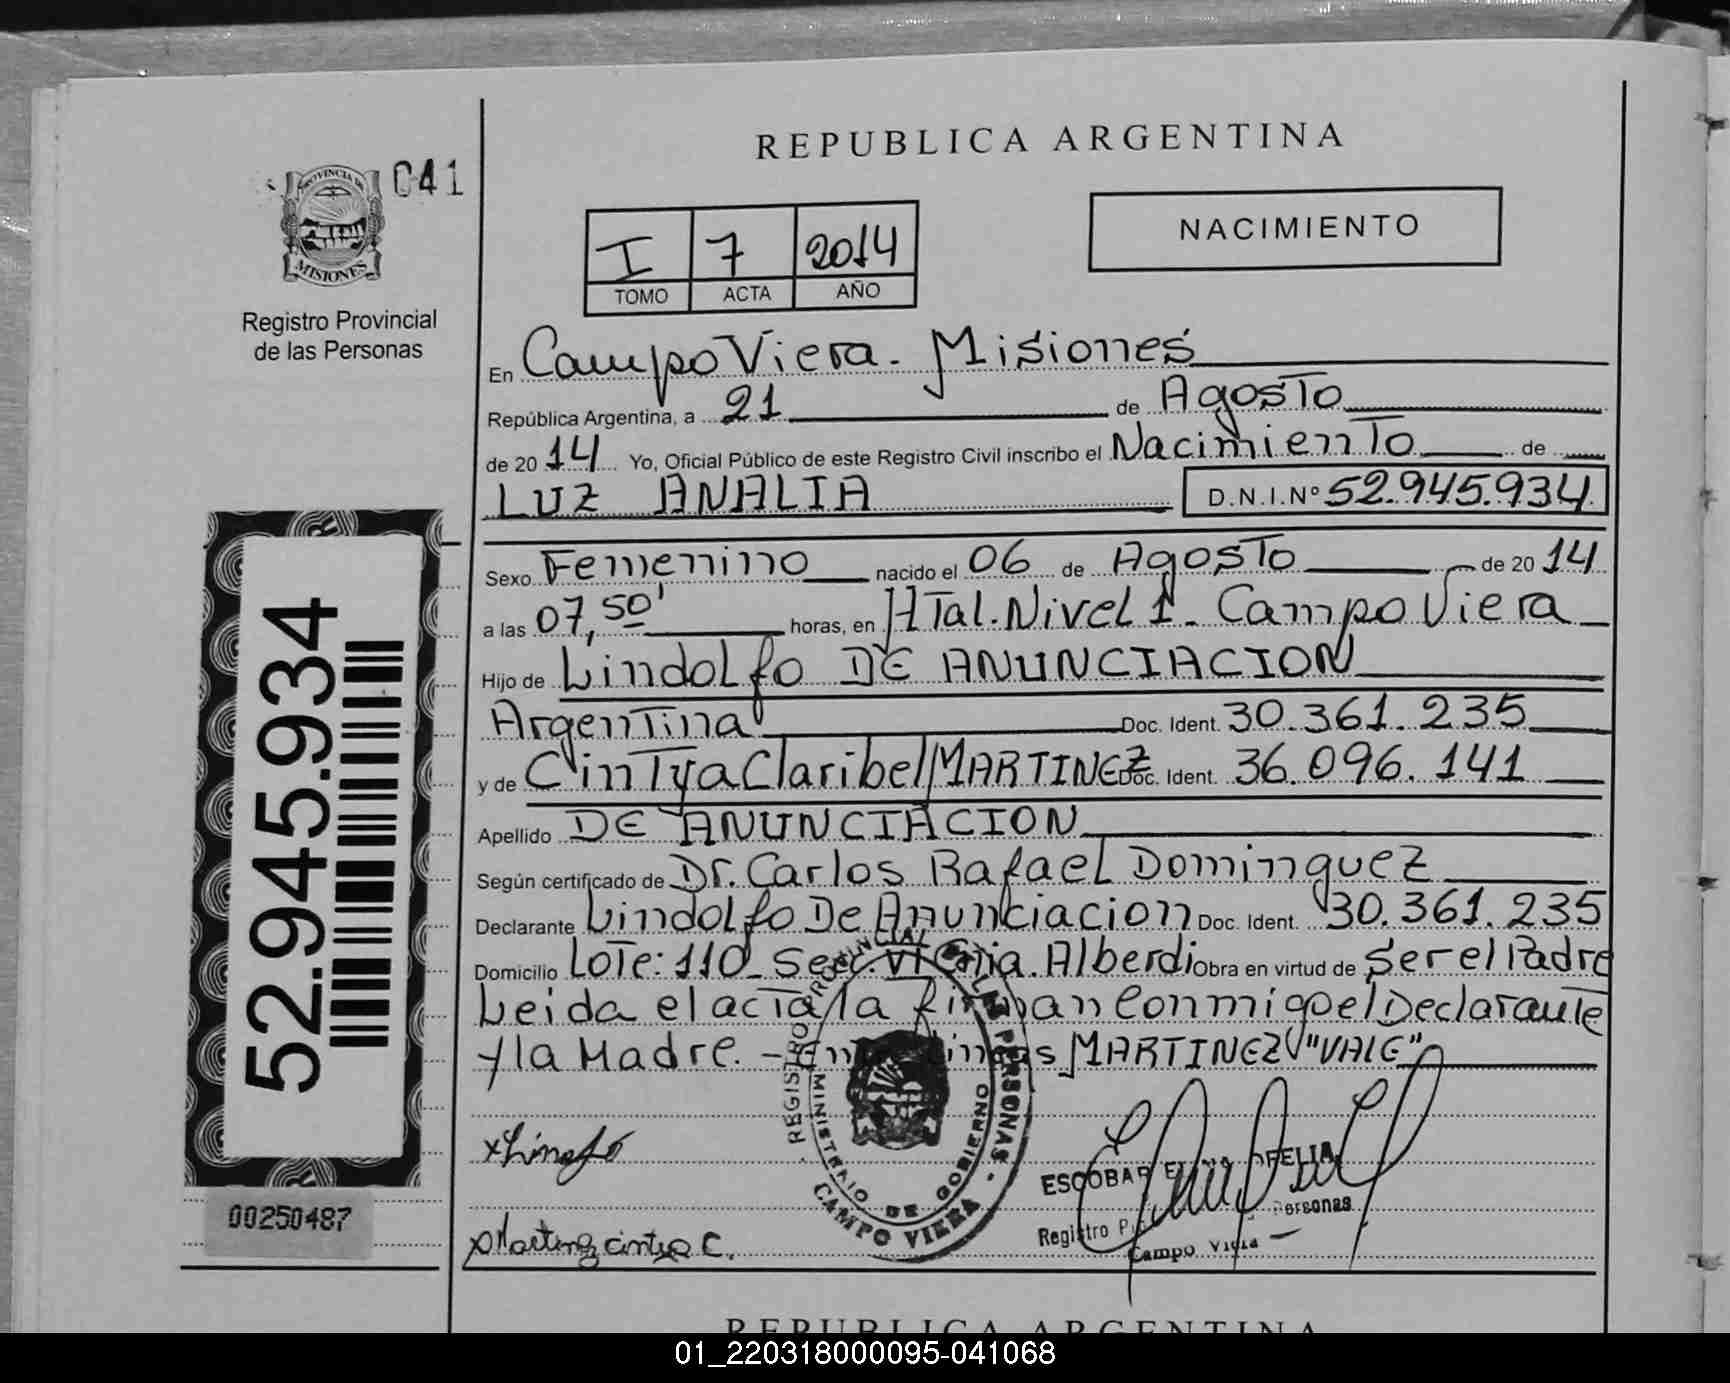 REPUBLICA ARGENTINA
041
PROVINCIA DE
MISIONES
Registro Provincial
de las Personas
I 7 2014
TOMO ACTA AÑO
NACIMIENTO
En Campo Viera - Misiones
República Argentina, a 21 de Agosto
de 2014 Yo, Oficial Público de este Registro Civil inscribo el Nacimiento de
LUZ ANALIA D.N.I.Nº 52.945.934
Sexo Femenino nacido el 06 de Agosto de 2014
a las 07,50' horas, en HTal. Nivel 1 - Campo Viera
Hijo de Lindolfo DE ANUNCIACION
Argentina Doc. Ident. 30.361.235
y de CinTya Claribel MARTINEZ Doc. Ident. 36.096.141
Apellido DE ANUNCIACION
Según certificado de Dr. Carlos Rafael Dominguez
Declarante Lindolfo De Anunciacion Doc. Ident. 30.361.235
Domicilio LoTe: 110 - Secc. VI Cnia. Alberdi Obra en virtud de Ser el Padre
Leida el acta la firman Conmigo el Declarante
y la Madre. - Entre lineas MARTINEZ "VALE"
52.945.934
00250487
REGISTRO PROVINCIAL DE LAS PERSONAS
MINISTERIO DE GOBIERNO
CAMPO VIERA
ESCOBAR OFELIA
Registro Personas
Campo Viera
Martinez cintya C.
REPUBLICA ARGENTINA
01_220318000095-041068